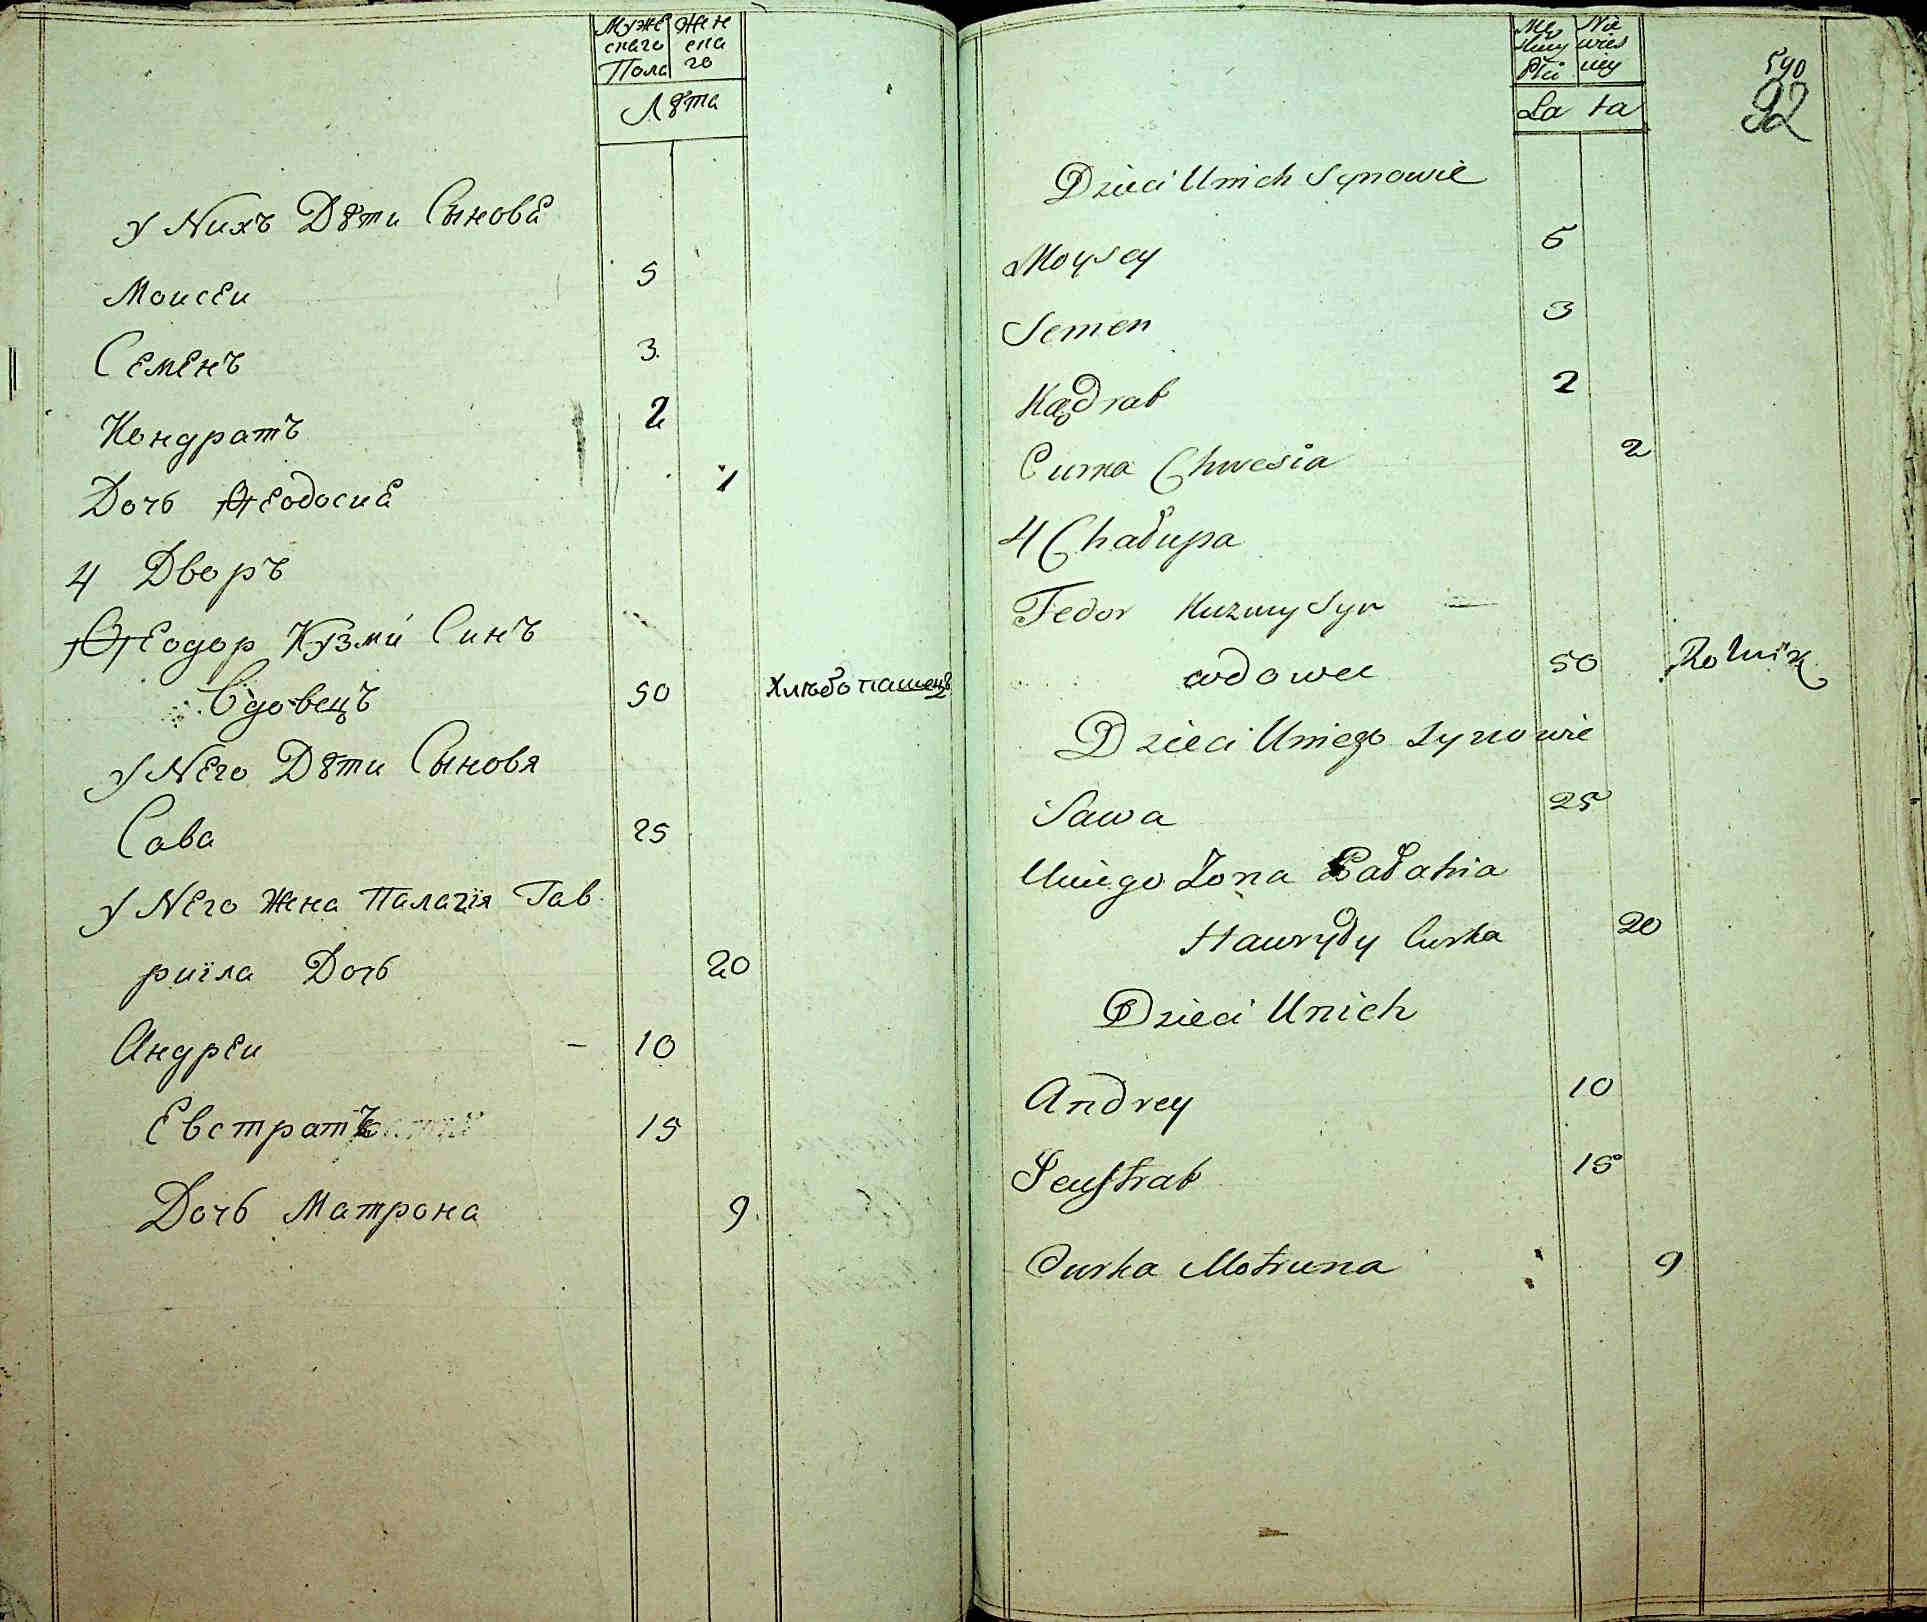 Муже Жен
скаго ска
Пола го
Лѣта
У Nихъ Дѣти Сыновѣ
Моисеи 5
Семенъ 3
Кондратъ 2
Дочь Ѳеодосиѣ 1
4 Дворъ
Ѳеодор Кузми Синъ
Вдовецъ 50 Хлѣбопашецъ
У Nего Дѣти Сыновя
Сава 25
У Nего Жена Палагія Гав
риїла Дочь 20
Андреи 10
Евстратъ 15
Дочь Матрона 9
Mę Nie
skiey wies
Płci ciey
La ta
540
92
Dzieci Unich Synowie
Moysey 5
Semen 3
Kądrat 2
Curka Chwesia 2
4 Chałupa
Fedor Kuzmy Syn
wdowec 50 Rolnik
Dzieci Uniego Synowie
Sawa 25
Uniego Żona Pałahia
Hawryły Curka 20
Dzieci Unich
Andrey 10
Jeustrat 15
Curka Motruna 9